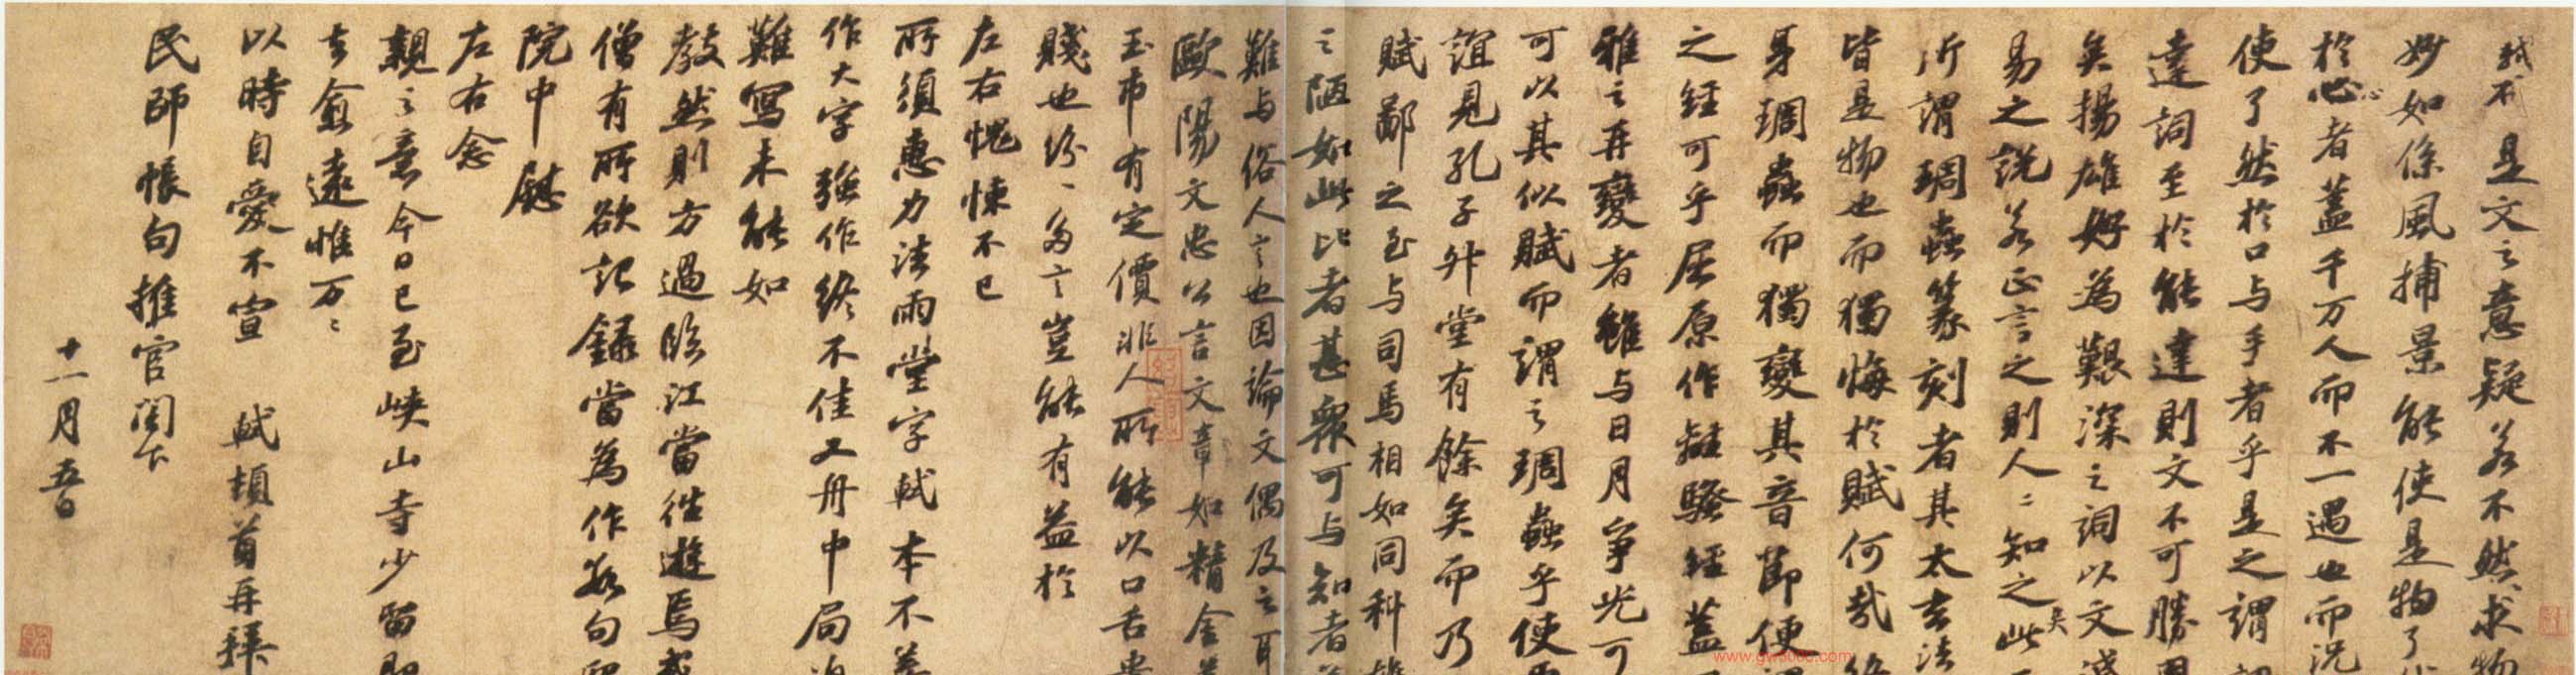 軾不 是文之意疑若不然求物
妙如係風捕景能使是物了
於心者蓋千万人而不一遇也而況
使了然於口与手者乎是之謂
達詞至於能達則文不可勝
矣揚雄好為艱深之詞以文淺
易之說若正言之則人〻知之矣此
所謂琱蟲篆刻者其太玄法
皆是物也而獨悔於賦何哉終
身琱蟲而獨變其音節便謂
之經可乎屈原作離騷經蓋
雅之再變者雖与日月爭光可
可以其似賦而謂之琱蟲乎使
誼見孔子升堂有餘矣而乃
賦鄙之至与司馬相如同科雄
之陋如此比者甚衆可与知者
難与俗人言也因論文偶及之耳
歐陽文忠公言文章如精金美
玉市有定價非人所能以口舌貴
賤也紛〻多言豈能有益於
左右愧悚不已
所須惠力法雨堂字軾本不善
作大字強作終不佳又舟中局迫
難寫未能如
教然則方過臨江當往遊焉或
僧有所欲記錄當為作數句留
院中慰
左右念
親之意今日已至峽山寺少留即
去愈遠惟万〻
以時自愛不宣 軾頓首再拜
民師帳句推官閣下
十一月五日